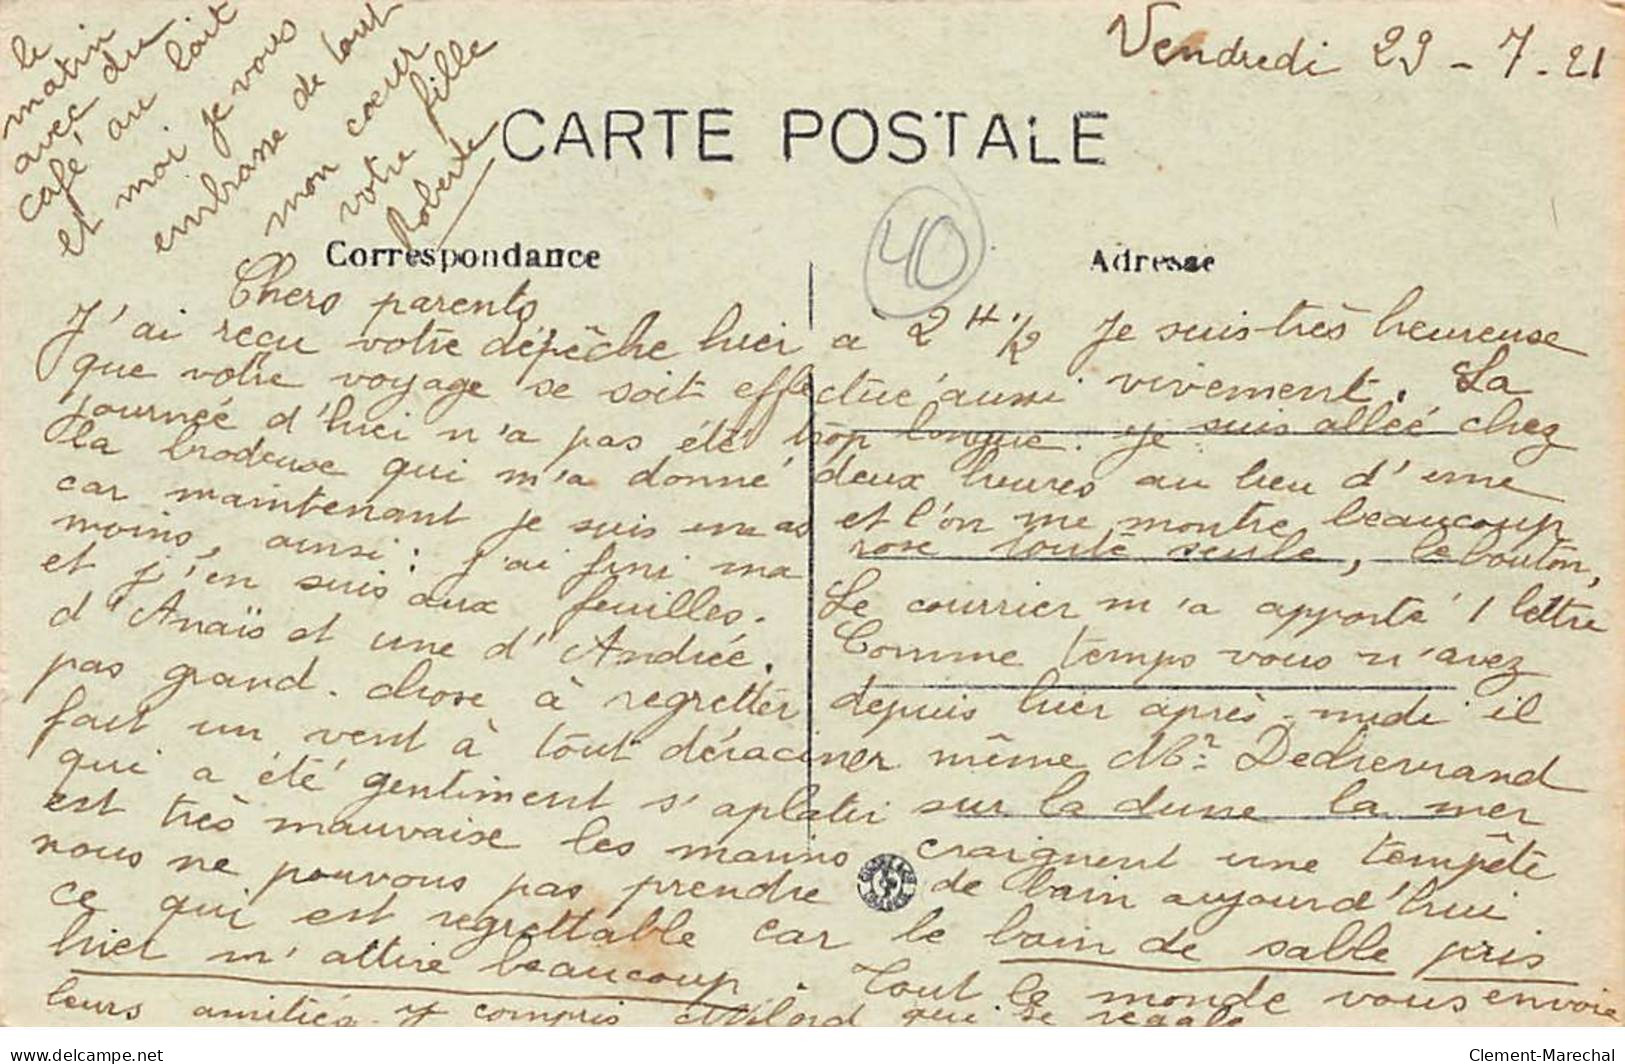 Vendredi 29-7-21
CARTE POSTALE
Correspondance
Adresse
40
Chers parents
J'ai reçu votre dépêche hier a 2 H 1/2 je suis très heureuse
que votre voyage se soit effectué aussi vivement. La
journée d'hier n'a pas été trop longue. Je suis allée chez
la brodeuse qui m'a donné deux heures au lieu d'une
car maintenant je suis et l'on me montre beaucoup
moins, ainsi: j'ai fini ma rose toute seule, le bouton,
et j'en suis aux feuilles. Le courrier m'a apporté 1 lettre
d'Anaïs et une d'Andrée. Comme temps vous n'avez
pas grand. chose à regretter depuis hier après-midi il
fait un vent à tout déraciner même Mr Dechevrand
qui a été gentiment s'aplatir sur la dune la mer
est très mauvaise les marins craignent une tempête
nous ne pouvons pas prendre de bain aujourd'hui
ce qui est regrettable car le bain de sable pris
hier m'attire beaucoup. Tout le monde vous envoie
leurs amitiés y compris Milord qui se régale
le
matin
avec du
café au lait
et moi je vous
embrasse de tout
mon cœur
votre fille
Roberte
Clement-Marechal
www.delcampe.net